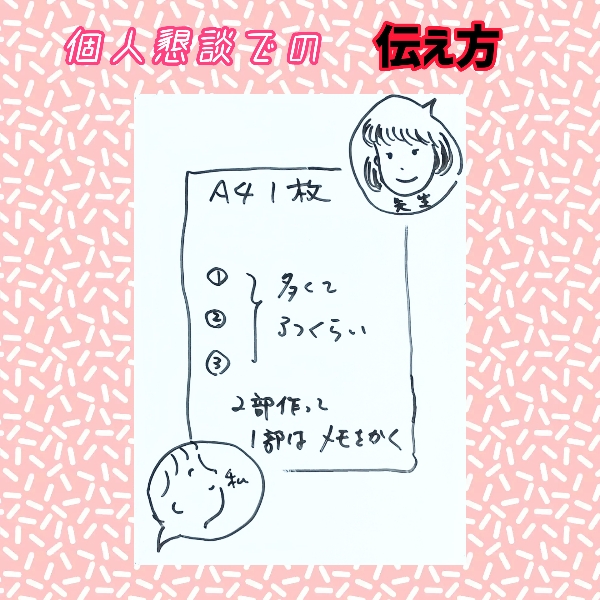 個人懇談での 伝え方
先生
A4 1枚
①
② 多くて
③ 3つくらい
2部作って
1部は メモをかく
私